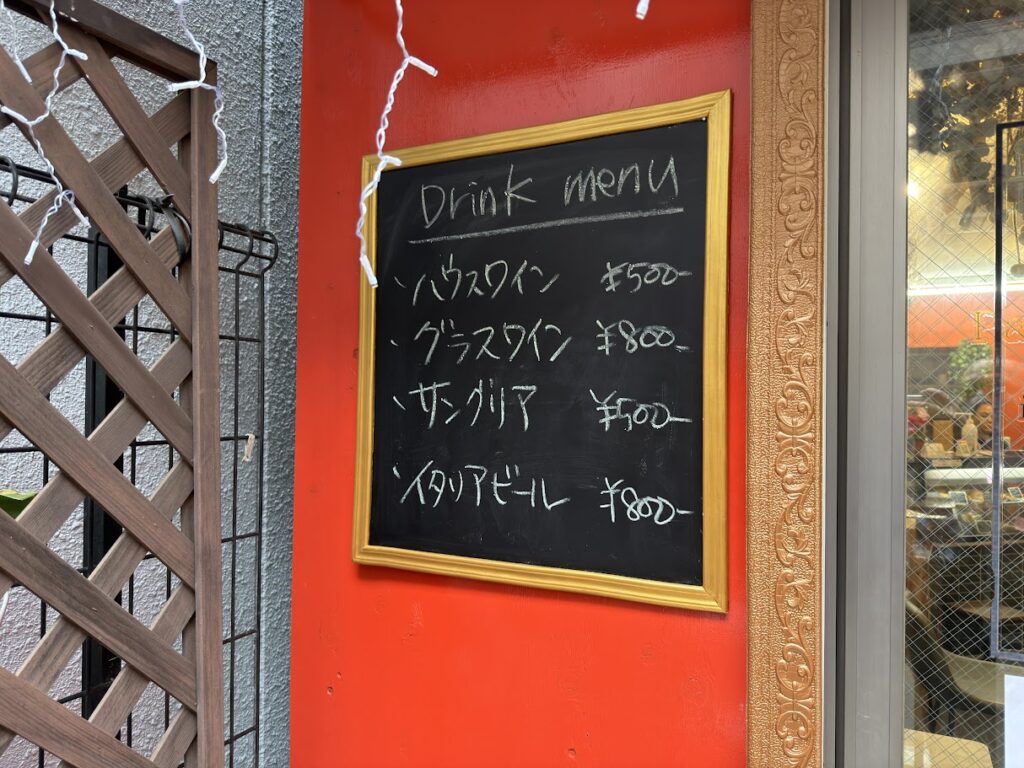 Drink menu
、ハウスワイン ¥500-
、グラスワイン ¥800-
、サングリア ¥500-
、イタリアビール ¥800-